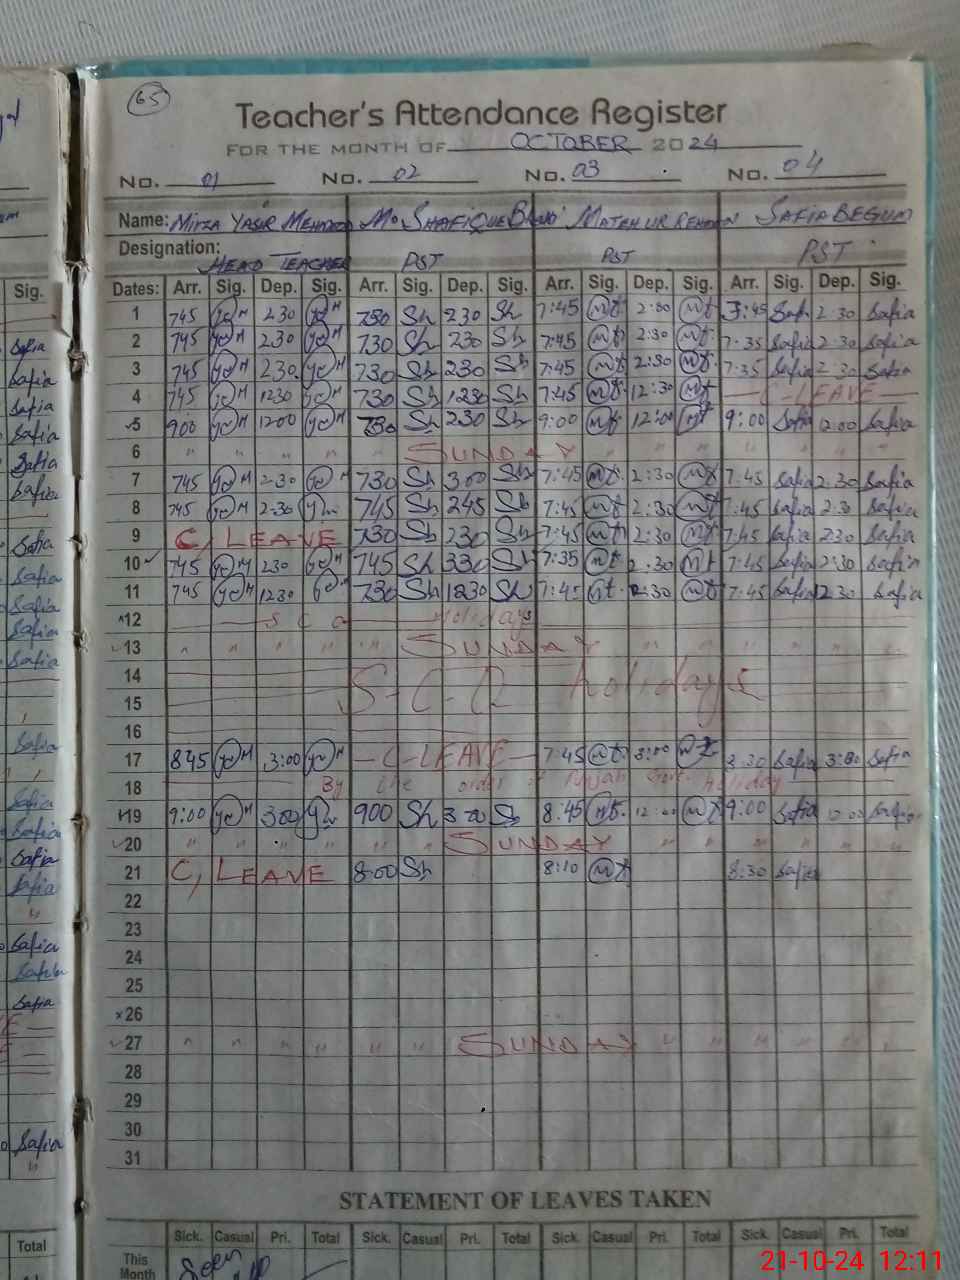 65
Teacher's Attendance Register
FOR THE MONTH OF OCTOBER 2024
No. 01 No. 02 No. 03 No. 04
Name: MIRZA YASIR MEHMOOD M. SHAFIQUE MATEH UR REHMAN SAFIA BEGUM
Designation: HEAD TEACHER PST PST PST
Sig. Dates: Arr. Sig. Dep. Sig. Arr. Sig. Dep. Sig. Arr. Sig. Dep. Sig. Arr. Sig. Dep. Sig.
1 745 230 730 Sh 230 Sh 7:45 mt 2:30 mt 7:45 Safia 2:30 Safia
2 745 230 730 Sh 230 Sh 7:45 mt 2:30 mt 7:35 Safia 2:30 Safia
3 745 230 730 Sh 230 Sh 7:45 mt 2:30 mt 7:35 Safia 2:30 Safia
4 745 1230 730 Sh 1230 Sh 7:45 mt 12:30 mt C-LEAVE
5 900 1200 730 Sh 230 Sh 9:00 mt 12:00 mt 9:00 Safia 12:00 Safia
6 " SUNDAY " " " " " "
7 745 2-30 730 Sh 300 Sh 7:45 mt 2:30 mt 7:45 Safia 2:30 Safia
8 745 2-30 745 Sh 245 Sh 7:45 mt 2:30 mt 7:45 Safia 2:30 Safia
9 C, LEAVE 730 Sh 230 Sh 7:45 mt 2:30 mt 7:45 Safia 230 Safia
10 745 230 745 Sh 330 Sh 7:35 mt 2:30 mt 7:45 Safia 2:30 Safia
11 745 1230 730 Sh 1230 Sh 7:45 mt 12:30 mt 7:45 Safia 12:30 Safia
12 S C O Holidays
13 " " " " " SUNDAY " " " " " "
14 S-C-O holidays
15
16
17 845 3:00 C-LEAVE 7:45 mt 3:00 mt 8:30 Safia 3:00 Safia
18 By the order of Punjab Govt. holiday
19 9:00 300 900 Sh 300 Sh 8:45 mt 12:00 mt 9:00 Safia 12:00 Safia
20 " " " " " " SUNDAY " " " " "
21 C, LEAVE 8:00 Sh 8:10 mt 8:30 Safia
22
23
24
25
26
27 " " " " " " SUNDAY " " " " "
28
29
30
31
STATEMENT OF LEAVES TAKEN
Total Sick. Casual Pri. Total Sick. Casual Pri. Total Sick. Casual Pri. Total Sick. Casual Pri. Total
This Month Seen
21-10-24 12:11